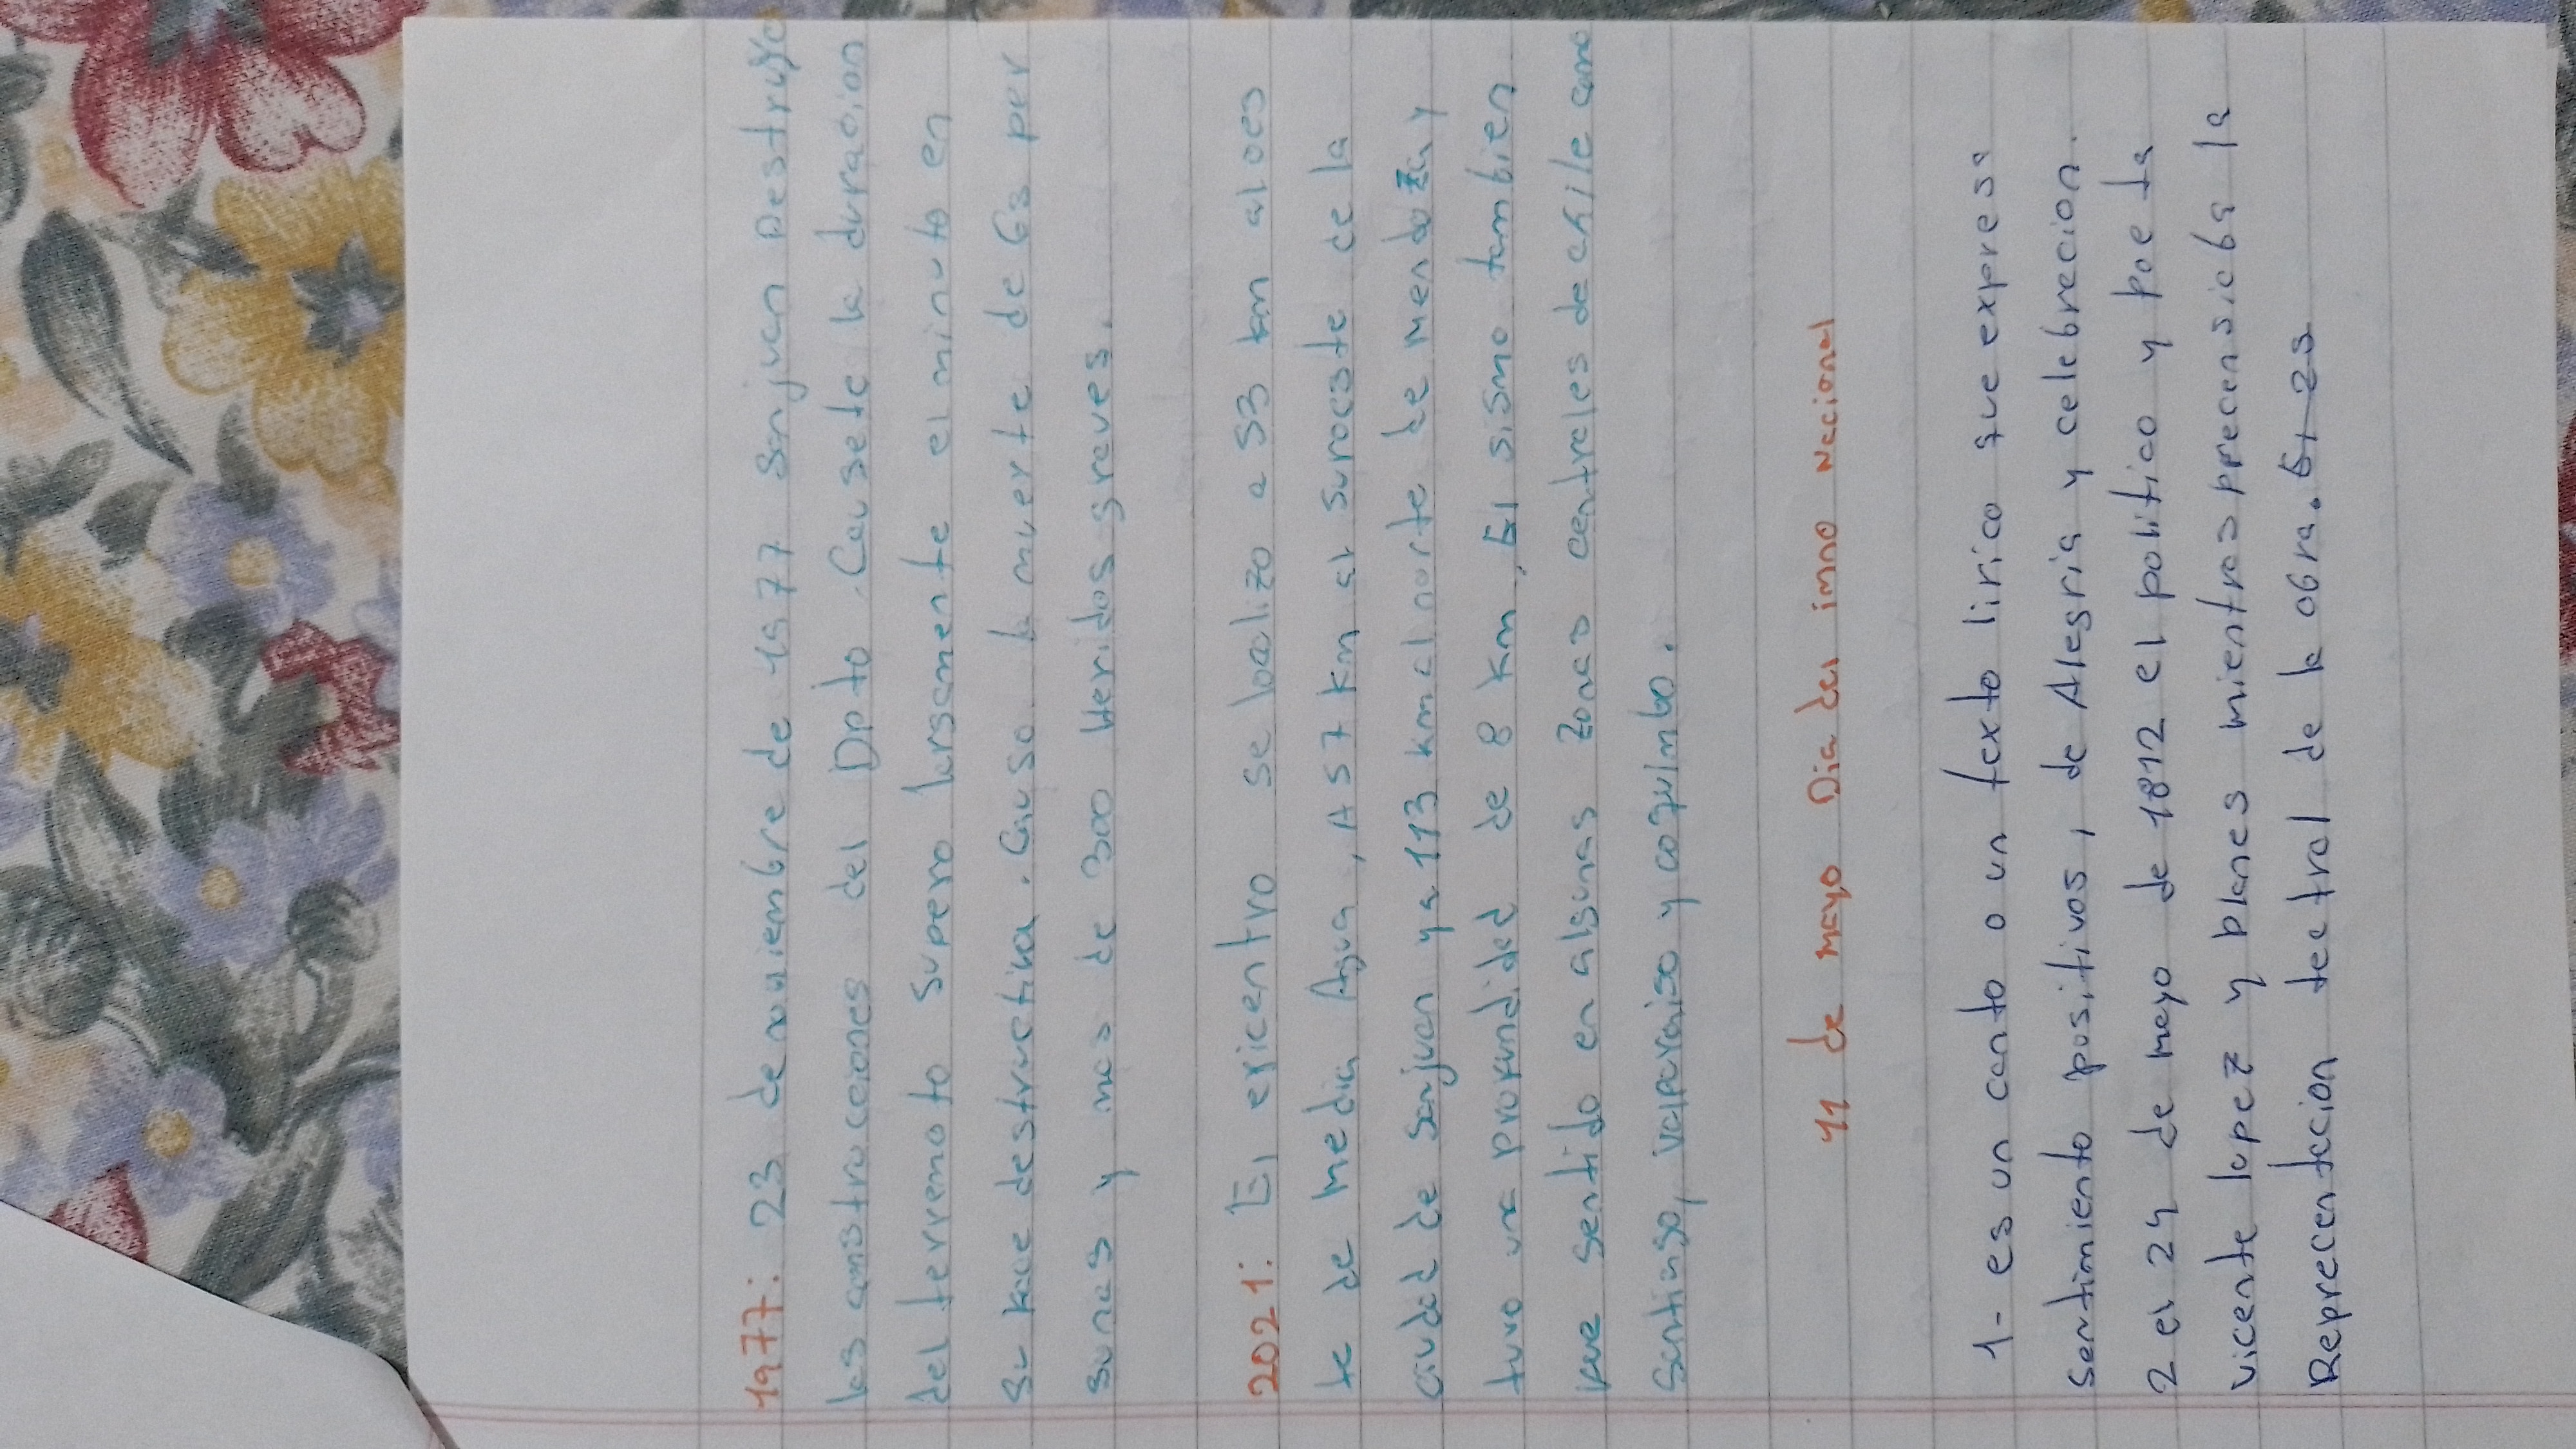 1977: 23 de noviembre de 1977 sanjuan Destruyo
las constrocciones del Dpto. Causete la duracion
del terremoto supero largamente el minuto en
su fase destructiva. Causo la muerte de 63 per
sunas y mas de 300 Heridos graves.
2021: El epicentro se localizo a 53 km al oes
te de media Agua, A 57 km al suroeste de la
ciudad de sanjuan y a 113 km al norte de Mendoza y
tuvo una profundidad de 8 km. El sismo tambien
fue sentido en algunas zonas centrales de chile como
Santiago, valparaiso y coquimbo.
11 de mayo Dia del imno Nacional
1- es un canto o un texto lirico que expresa
sentimiento positivos, de Alegria y celebracion.
2 el 24 de mayo de 1812 el politico y poeta
vicente lopez y planes mientras precensiaba la
Reprecentacion teatral de la obra.